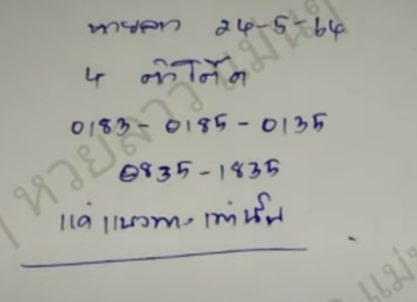 หวยลาว 24-5-64
4 ตัวโต๊ด
0183 - 0185 - 0135
0835 - 1835
แค่แนวทางเท่านั้น
หวยลาว แม่นๆ